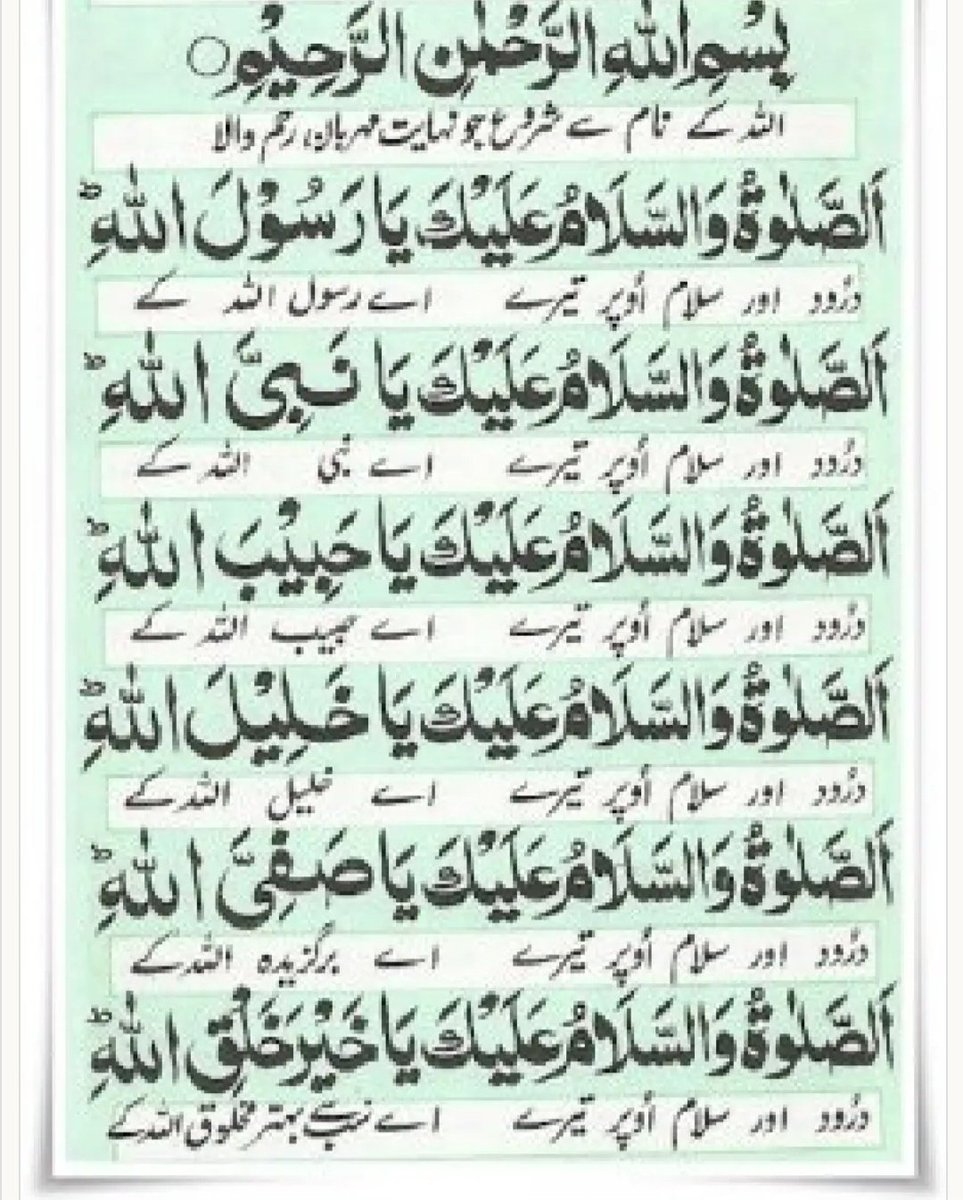 بِسْمِ اللهِ الرَّحْمٰنِ الرَّحِيْمِ ○
اللہ کے نام سے شروع جو نہایت مہربان، رحم والا
اَلصَّلٰوةُ وَالسَّلَامُ عَلَيْكَ يَا رَسُوْلَ اللهِ ؕ
درُود اور سلام اُوپر تیرے اے رسول اللہ کے
اَلصَّلٰوةُ وَالسَّلَامُ عَلَيْكَ يَا نَبِيَّ اللهِ ؕ
درُود اور سلام اُوپر تیرے اے نبی اللہ کے
اَلصَّلٰوةُ وَالسَّلَامُ عَلَيْكَ يَا حَبِيْبَ اللهِ ؕ
درُود اور سلام اُوپر تیرے اے حبیب اللہ کے
اَلصَّلٰوةُ وَالسَّلَامُ عَلَيْكَ يَا خَلِيْلَ اللهِ ؕ
درُود اور سلام اُوپر تیرے اے خلیل اللہ کے
اَلصَّلٰوةُ وَالسَّلَامُ عَلَيْكَ يَا صَفِيَّ اللهِ ؕ
درُود اور سلام اُوپر تیرے اے برگزیدہ اللہ کے
اَلصَّلٰوةُ وَالسَّلَامُ عَلَيْكَ يَا خَيْرَ خَلْقِ اللهِ ؕ
درُود اور سلام اُوپر تیرے اے سب سے بہتر مخلوق اللہ کے